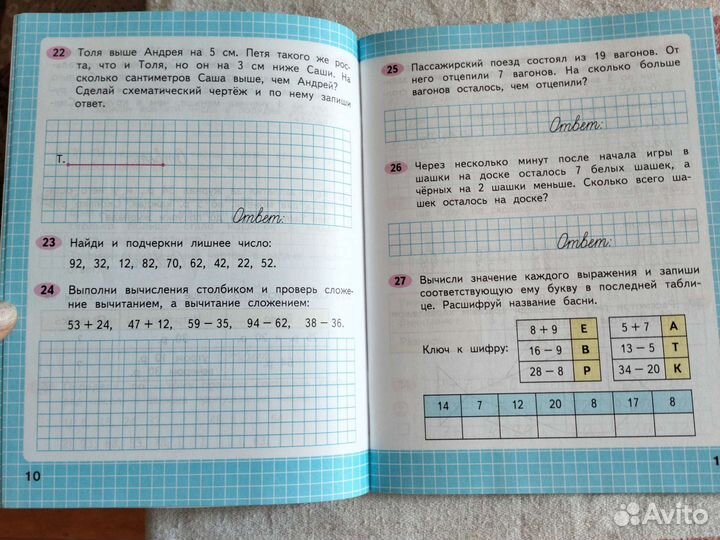 22 Толя выше Андрея на 5 см. Петя такого же рос-
та, что и Толя, но он на 3 см ниже Саши. На
сколько сантиметров Саша выше, чем Андрей?
Сделай схематический чертёж и по нему запиши
ответ.
Т.
Ответ:
23 Найди и подчеркни лишнее число:
92, 32, 12, 82, 70, 62, 42, 22, 52.
24 Выполни вычисления столбиком и проверь сложе-
ние вычитанием, а вычитание сложением:
53 + 24, 47 + 12, 59 − 35, 94 − 62, 38 − 36.
10
25 Пассажирский поезд состоял из 19 вагонов. От
него отцепили 7 вагонов. На сколько больше
вагонов осталось, чем отцепили?
Ответ:
26 Через несколько минут после начала игры в
шашки на доске осталось 7 белых шашек, а
чёрных на 2 шашки меньше. Сколько всего ша-
шек осталось на доске?
Ответ:
27 Вычисли значение каждого выражения и запиши
соответствующую ему букву в последней табли-
це. Расшифруй название басни.
Ключ к шифру:
8 + 9 Е 5 + 7 А
16 − 9 В 13 − 5 Т
28 − 8 Р 34 − 20 К
14 7 12 20 8 17 8
1
Avito